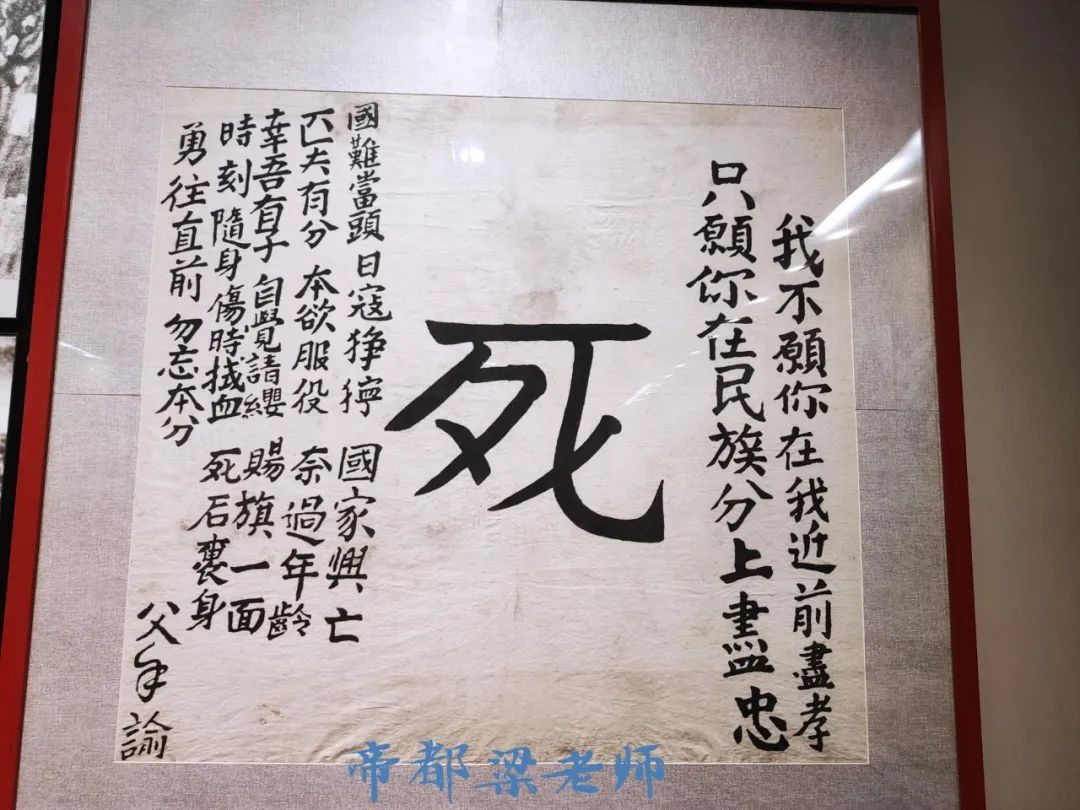 我不願你在我近前盡孝
只願你在民族分上盡忠
死
國難當頭 日寇猙獰 國家興亡
匹夫有分 本欲服役 奈過年齡
幸吾有子 自覺請纓 賜旗一面
時刻隨身 傷時拭血 死后裹身
勇往直前 勿忘本分
父手諭
帝都梁老师